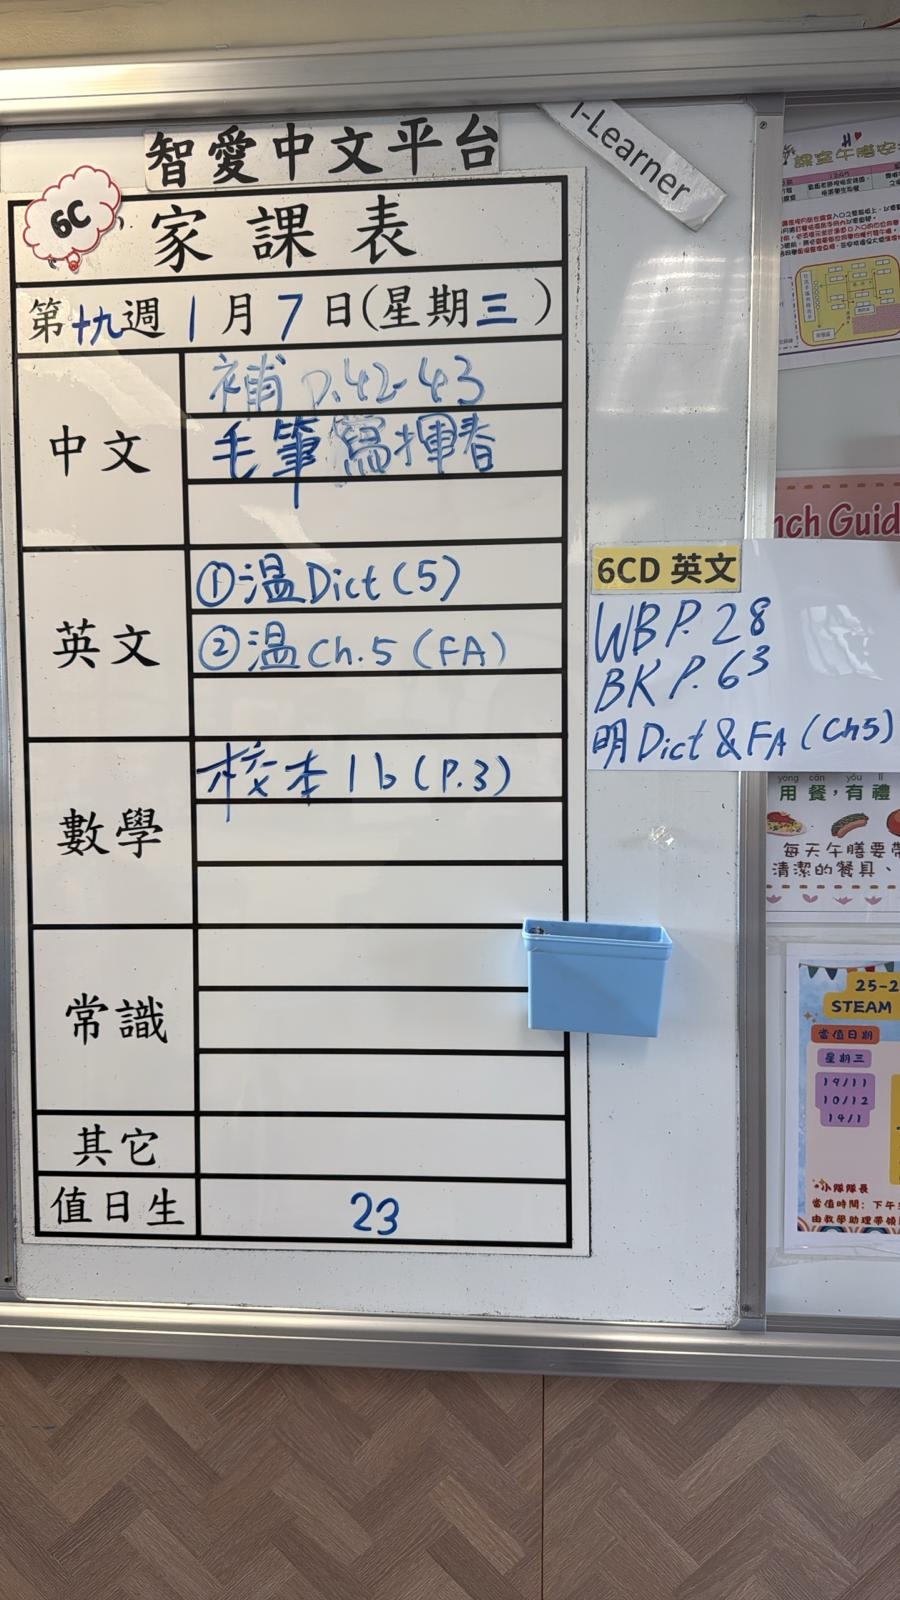 智愛中文平台
i-Learner
6C
家課表
第十九週 1月7日(星期三)
中文
補 P.42-43
毛筆寫揮春
英文
①溫Dict(5)
②溫Ch.5(FA)
數學
校本1b(P.3)
常識
其它
值日生
23
6CD 英文
WB P.28
BK P.63
明Dict & FA (Ch5)
課室午膳安
nch Guid
yòng cān yǒu lǐ
用餐,有禮
每天午膳要帶
清潔的餐具、
25-2
STEAM
當值日期
星期三
19/11
10/12
14/1
小隊隊長
當值時間：下午
由教學助理帶領